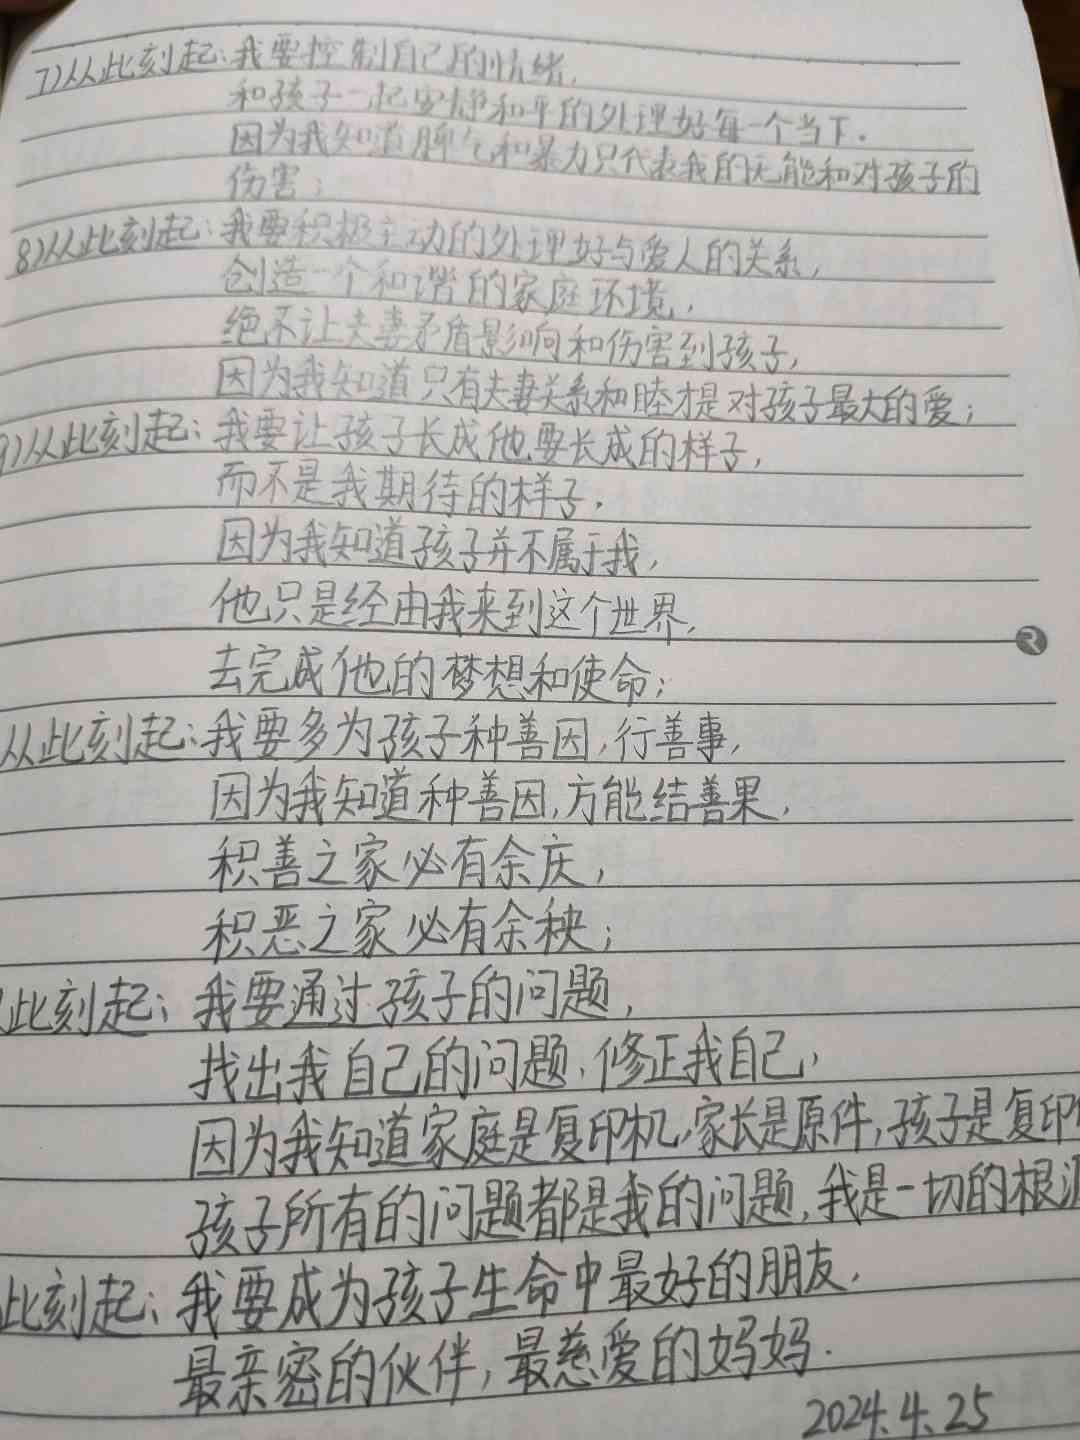 7)从此刻起:我要控制自己的情绪,
和孩子一起安静和平的处理好每一个当下.
因为我知道脾气和暴力只代表我的无能和对孩子的
伤害;
8)从此刻起:我要积极主动的处理好与爱人的关系,
创造一个和谐的家庭环境,
绝不让夫妻矛盾影响和伤害到孩子,
因为我知道只有夫妻关系和睦才是对孩子最大的爱;
9)从此刻起:我要让孩子长成他要长成的样子,
而不是我期待的样子.
因为我知道孩子并不属于我,
他只是经由我来到这个世界,
去完成他的梦想和使命;
从此刻起:我要多为孩子种善因,行善事,
因为我知道种善因,方能结善果,
积善之家必有余庆,
积恶之家必有余秧;
此刻起:我要通过孩子的问题,
找出我自己的问题,修正我自己,
因为我知道家庭是复印机,家长是原件,孩子是复印
孩子所有的问题都是我的问题,我是一切的根源
此刻起:我要成为孩子生命中最好的朋友,
最亲密的伙伴,最慈爱的妈妈.
2024.4.25